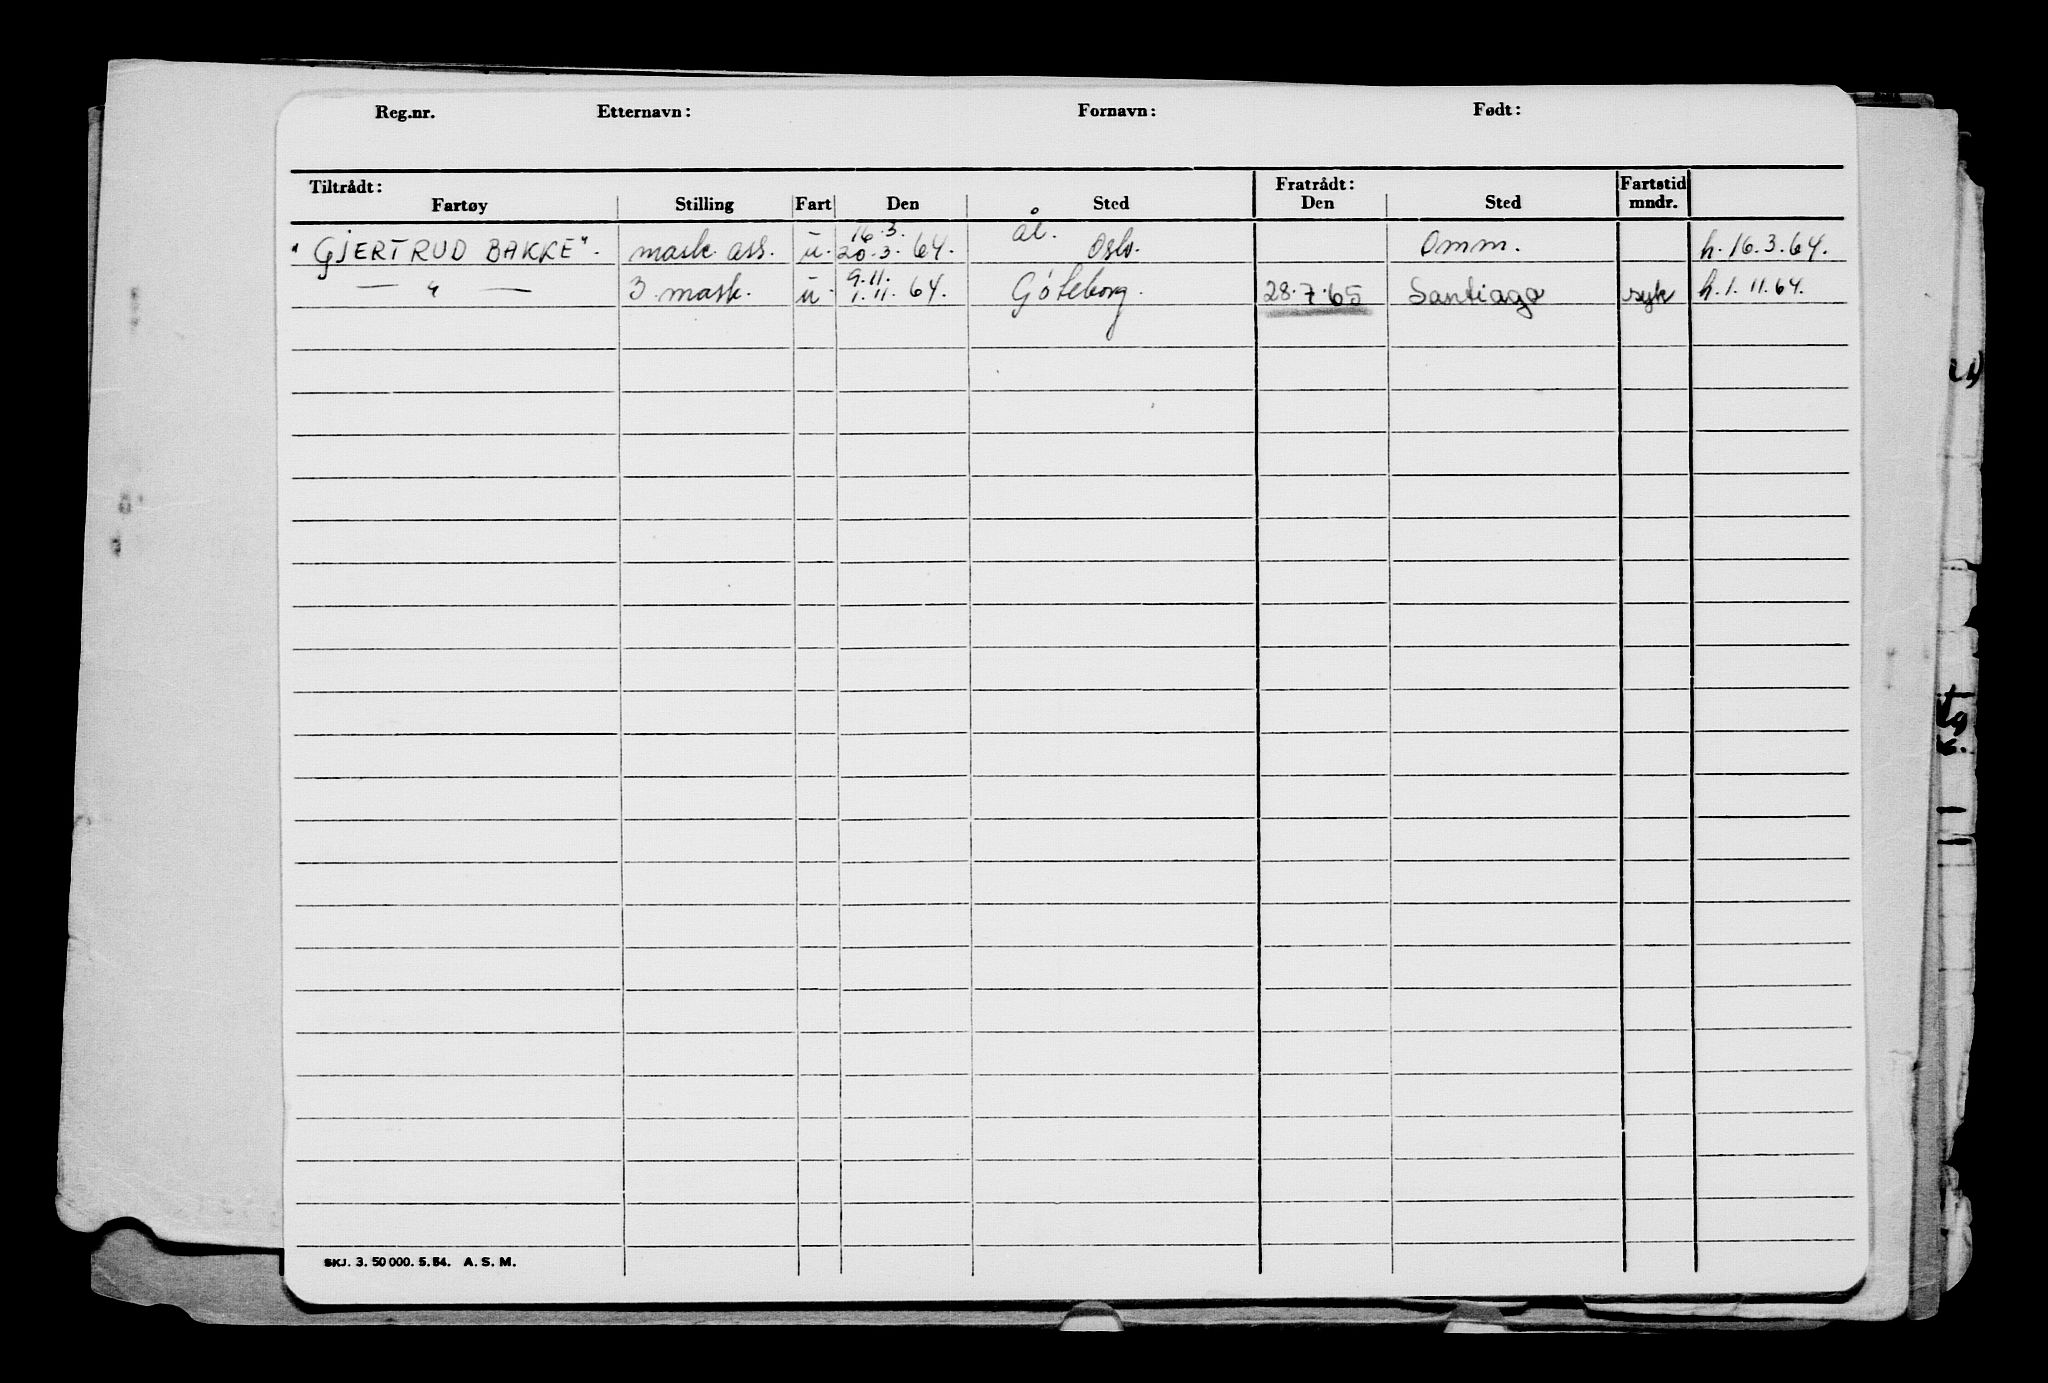 Reg.nr. Etternavn: Fornavn: Født:
Tiltrådt: Fratrådt: Fartstid
Fartøy Stilling Fart Den Sted Den Sted mndr.
16.3. Ål.
"GJERTRUD BAKKE". mask. ass. u. 20.3.64. Oslo. Omm. h. 16.3.64.
9.11.
— " — 3. mask. u. 1.11.64. Göteborg. 28.7.65 Santiago syk h. 1.11.64.
SKJ. 3. 50 000. 5.54. A. S. M.